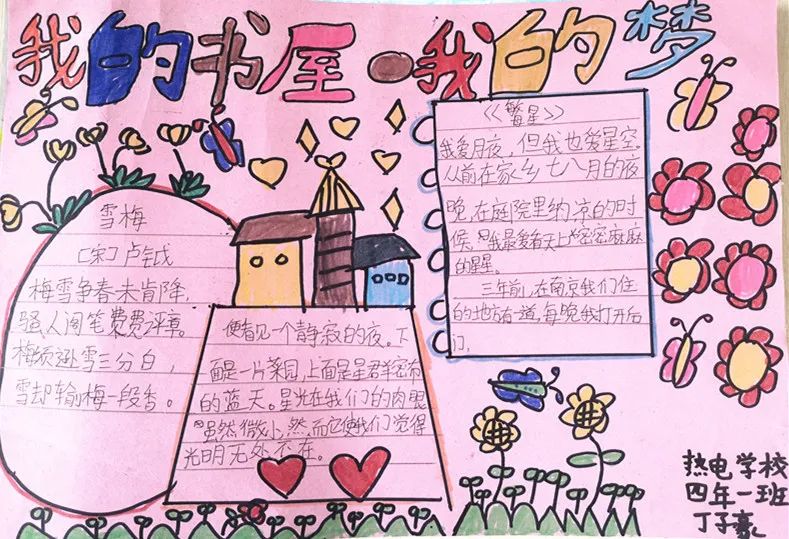 我的书屋·我的梦
雪梅
[宋]卢钺
梅雪争春未肯降,
骚人阁笔费费评章。
梅须逊雪三分白,
雪却输梅一段香。
《繁星》
我爱月夜,但我也爱星空。
从前在家乡七八月的夜
晚,在庭院里纳凉的时
候,我最爱看天上密密麻麻
的星星。
三年前,在南京我们住
的地方有一道,每晚我打开后
门,
便看见一个静寂的夜。下
面是一片菜园,上面是星群密布
的蓝天。星光在我们的肉眼
虽然微小,然而它使我们觉得
光明无处不在。
热电学校
四年一班
丁子豪